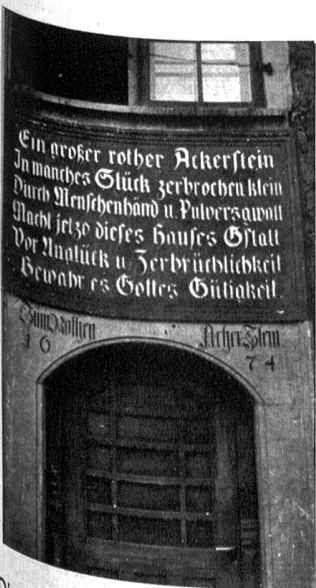 Ein großer rother Ackerstein
In manches Stück zerbrochen klein
Durch Menschenhänd u. Pulversgwalt
Macht jetzo dieses Hauses Gstalt
Vor Unglück u Zerbrüchlichkeit
Bewahr es Gottes Gütigkeit.
Zum Rothen Acher Stein
16 74